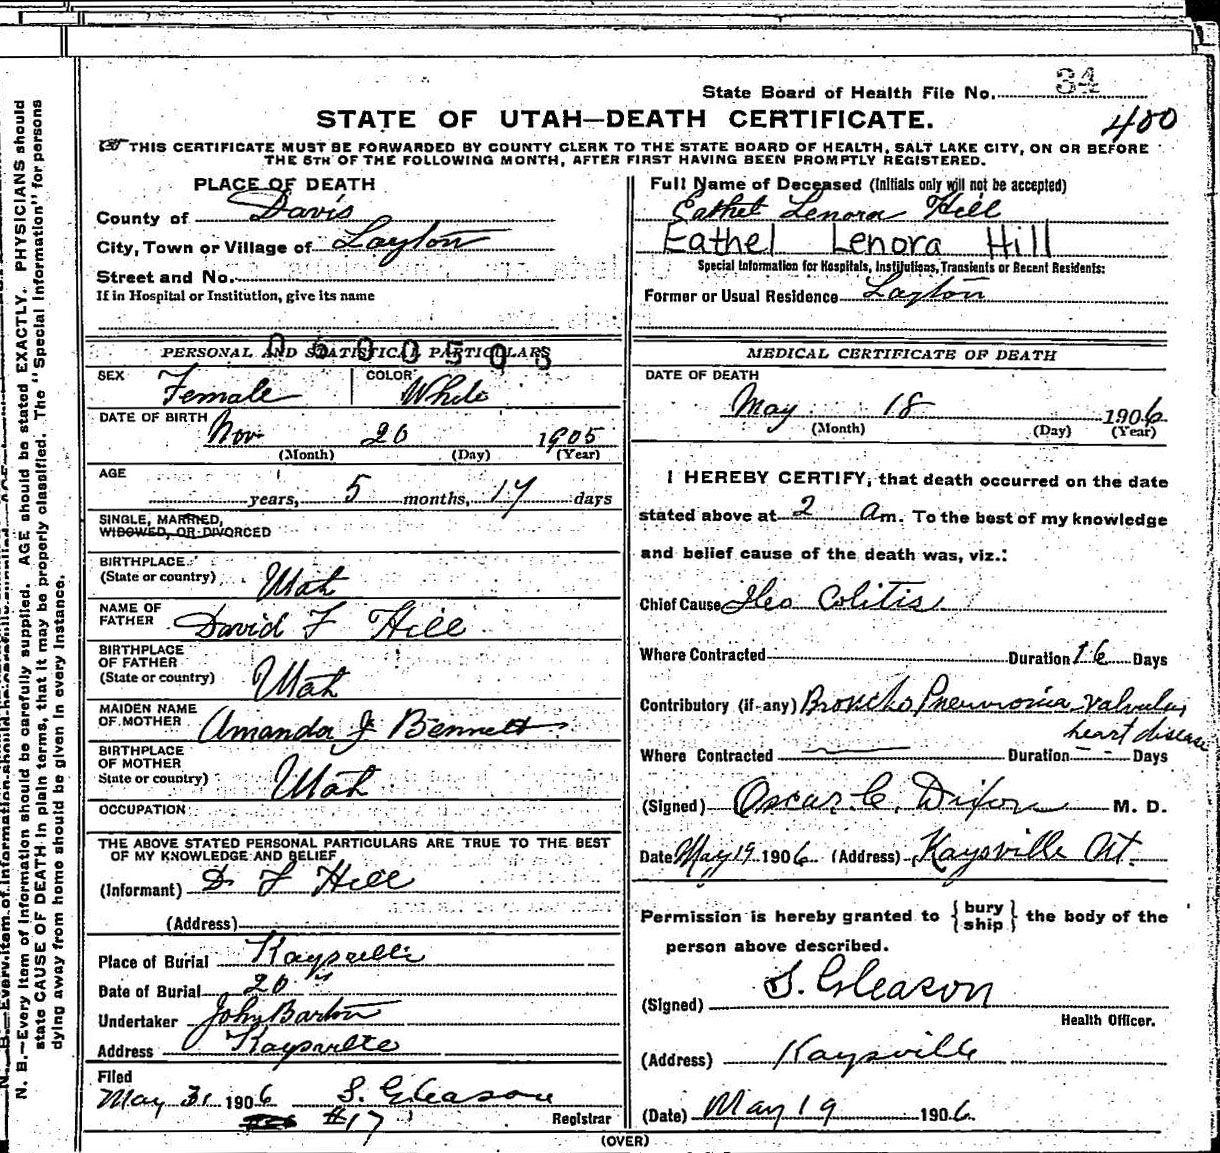 State Board of Health File No. 34
STATE OF UTAH—DEATH CERTIFICATE.
400
THIS CERTIFICATE MUST BE FORWARDED BY COUNTY CLERK TO THE STATE BOARD OF HEALTH, SALT LAKE CITY, ON OR BEFORE
THE 5TH OF THE FOLLOWING MONTH, AFTER FIRST HAVING BEEN PROMPTLY REGISTERED.
PLACE OF DEATH
County of Davis
City, Town or Village of Layton
Street and No.
If in Hospital or Institution, give its name
0500505
PERSONAL AND STATISTICAL PARTICULARS
SEX Female COLOR White
DATE OF BIRTH Nov 20 1905
(Month) (Day) (Year)
AGE
years, 5 months, 17 days
SINGLE, MARRIED,
WIDOWED, OR DIVORCED
BIRTHPLACE
(State or country) Utah
NAME OF
FATHER David F Hill
BIRTHPLACE
OF FATHER
(State or country) Utah
MAIDEN NAME
OF MOTHER Amanda J Bennett
BIRTHPLACE
OF MOTHER
State or country) Utah
OCCUPATION
THE ABOVE STATED PERSONAL PARTICULARS ARE TRUE TO THE BEST
OF MY KNOWLEDGE AND BELIEF
(Informant) D F Hill
(Address)
Place of Burial Kaysville
Date of Burial 20 "
Undertaker John Barton
Address Kaysville
Filed
May 31 1906 S. Gleason
#17 Registrar
Full Name of Deceased (Initials only will not be accepted)
Eathel Lenora Hill
Eathel Lenora Hill
Special Information for Hospitals, Institutions, Transients or Recent Residents:
Former or Usual Residence Layton
MEDICAL CERTIFICATE OF DEATH
DATE OF DEATH
May 18 1906
(Month) (Day) (Year)
I HEREBY CERTIFY, that death occurred on the date
stated above at 2 am. To the best of my knowledge
and belief cause of the death was, viz.:
Chief Cause Ileo Colitis
Where Contracted Duration 16 Days
Contributory (if any) Broncho Pneumonia valvular
heart disease
Where Contracted Duration Days
(Signed) Oscar C. Dixon M. D.
Date May 19 1906 (Address) Kaysville Ut.
Permission is hereby granted to {bury
ship} the body of the
person above described.
(Signed) S. Gleason
Health Officer.
(Address) Kaysville
(Date) May 19 1906.
(OVER)
N. B.—Every item of information should be carefully supplied. AGE should be stated EXACTLY. PHYSICIANS should
state CAUSE OF DEATH in plain terms, that it may be properly classified. The "Special Information" for persons
dying away from home should be given in every instance.